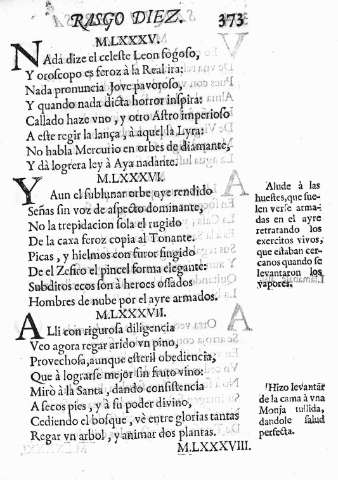 RASGO DIEZ. 373
M.LXXXV.
NAda dize el celeste Leon fogoso,
Y oroscopo es feroz à la Real ira:
Nada pronuncia Jove pavoroso,
Y quando nada dicta horror inspira:
Callado haze vno, y otro Astro imperioso
A este regir la lança, à aquel la Lyra:
No habla Mercurio en orbes de diamante,
Y dà logrera ley à Aya nadante.
M.LXXXVI.
Y Aun el sublunar orbe oye rendido
Señas sin voz de aspecto dominante,
No la trepidacion sola el rugido
De la caxa feroz copia al Tonante.
Picas, y hielmos con furor fingido
De el Zefiro el pincel forma elegante:
Subditos ecos son à heroes ossados
Hombres de nube por el ayre armados.
Alude à las
huestes, que sue-
len verse arma-
das en el ayre
retratando los
exercitos vivos,
que estaban cer-
canos quando se
levantaron los
vapores.
M.LXXXVII.
ALli con rigurosa diligencia
Veo agora regar arido vn pino,
Provechosa, aunque esteril obediencia,
Que à lograrse mejor sin fruto vino:
Mirò à la Santa, dando consistencia
A secos pies, y à su poder divino,
Cediendo el bosque, vè entre glorias tantas
Regar vn arbol, y animar dos plantas.
Hizo levantar
de la cama à vna
Monja tullida,
dandole salud
perfecta.
M.LXXXVIII.